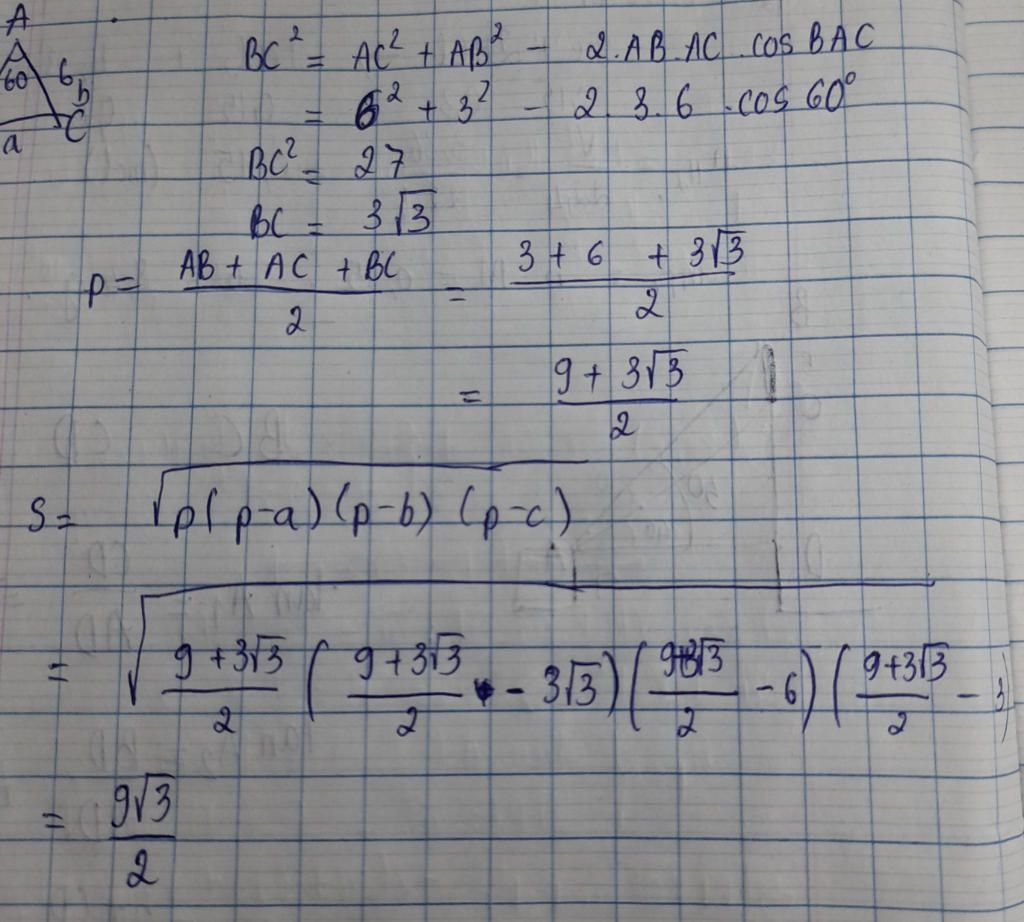 A
60 6
b
C
a
BC² = AC² + AB² - 2.AB.AC.cos BAC
= 6² + 3² - 2.3.6.cos 60°
BC² = 27
BC = 3√3
p = (AB + AC + BC)/2 = (3 + 6 + 3√3)/2
= (9 + 3√3)/2
S = √(p(p-a)(p-b)(p-c))
= √((9+3√3)/2 ((9+3√3)/2 - 3√3)((9+3√3)/2 - 6)((9+3√3)/2 - 3))
= 9√3/2